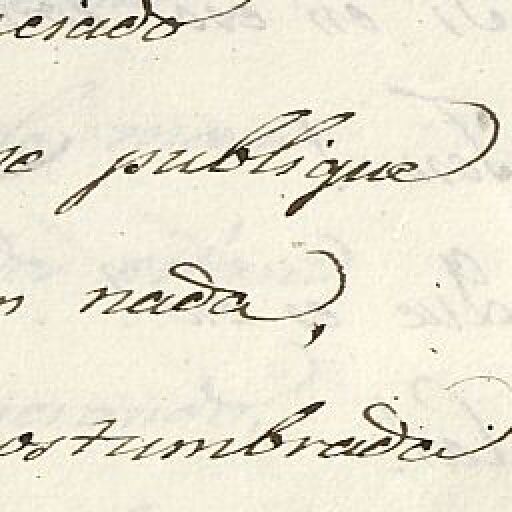 ciado
e publique
n nada,
ostumbrada